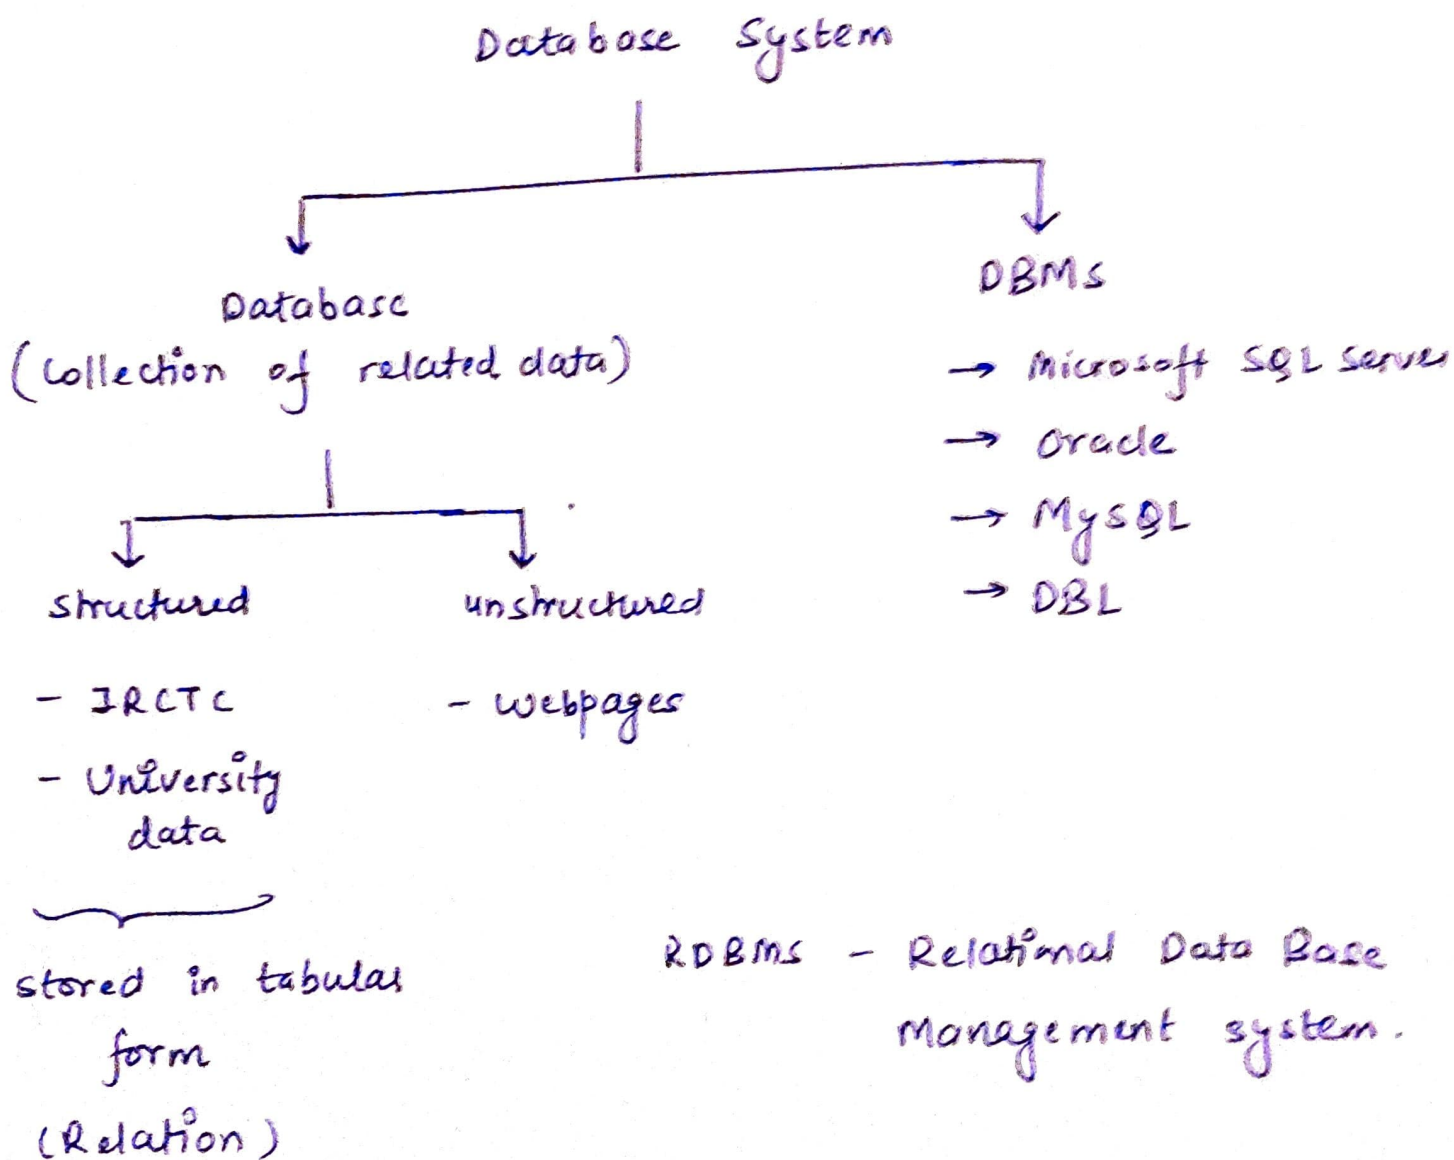 Database System
Database
(Collection of related data)
DBMS
→ Microsoft SQL Server
→ Oracle
→ MySQL
→ DBL
structured
unstructured
- IRCTC
- University
data
- Webpages
stored in tabular
form
(Relation)
RDBMS - Relational Data Base
Management system.